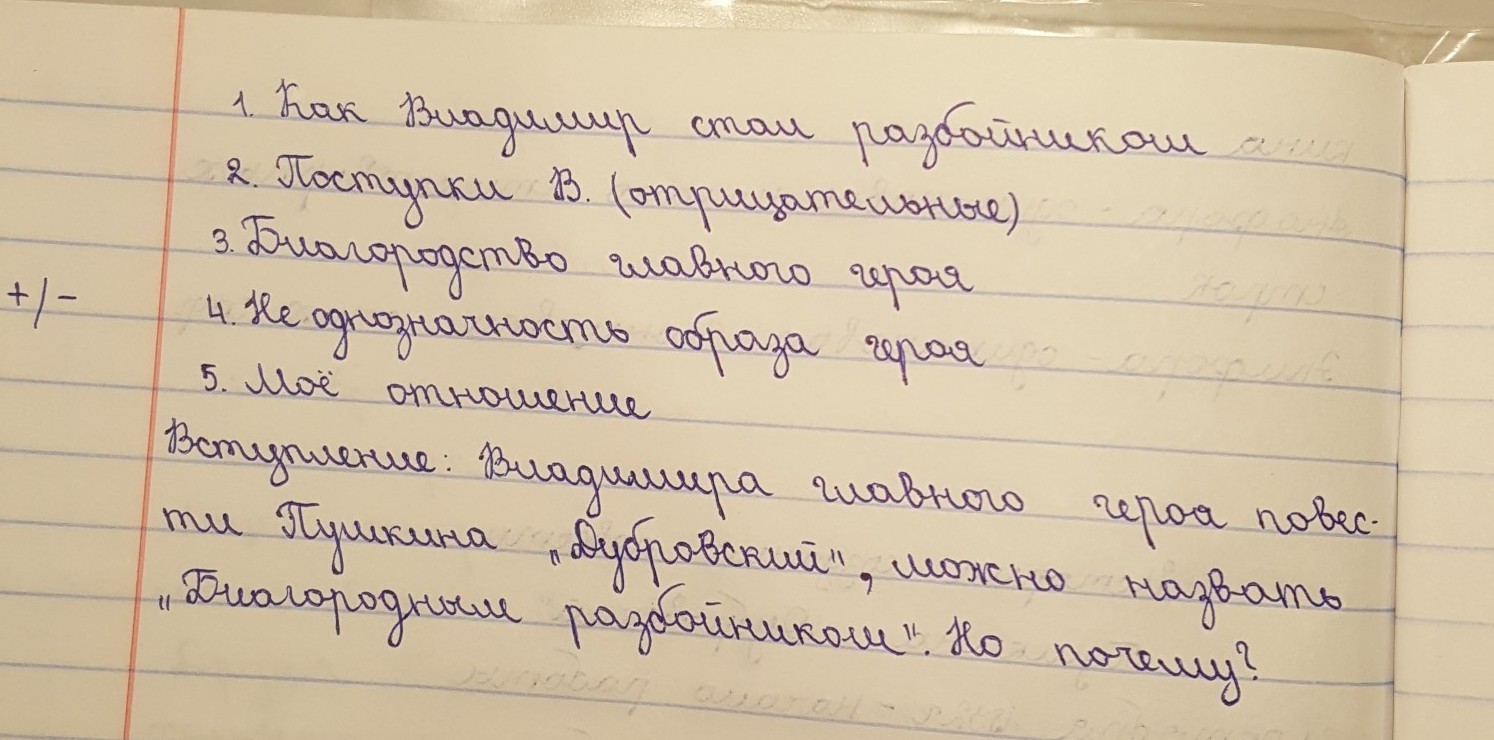 1. Как Владимир стал разбойником
2. Поступки В. (отрицательные)
3. Благородство главного героя
+/-
4. Не однозначность образа героя
5. Моё отношение
Вступление: Владимира главного героя повес-
ти Пушкина „Дубровский", можно назвать
„Благородным разбойником". Но почему?